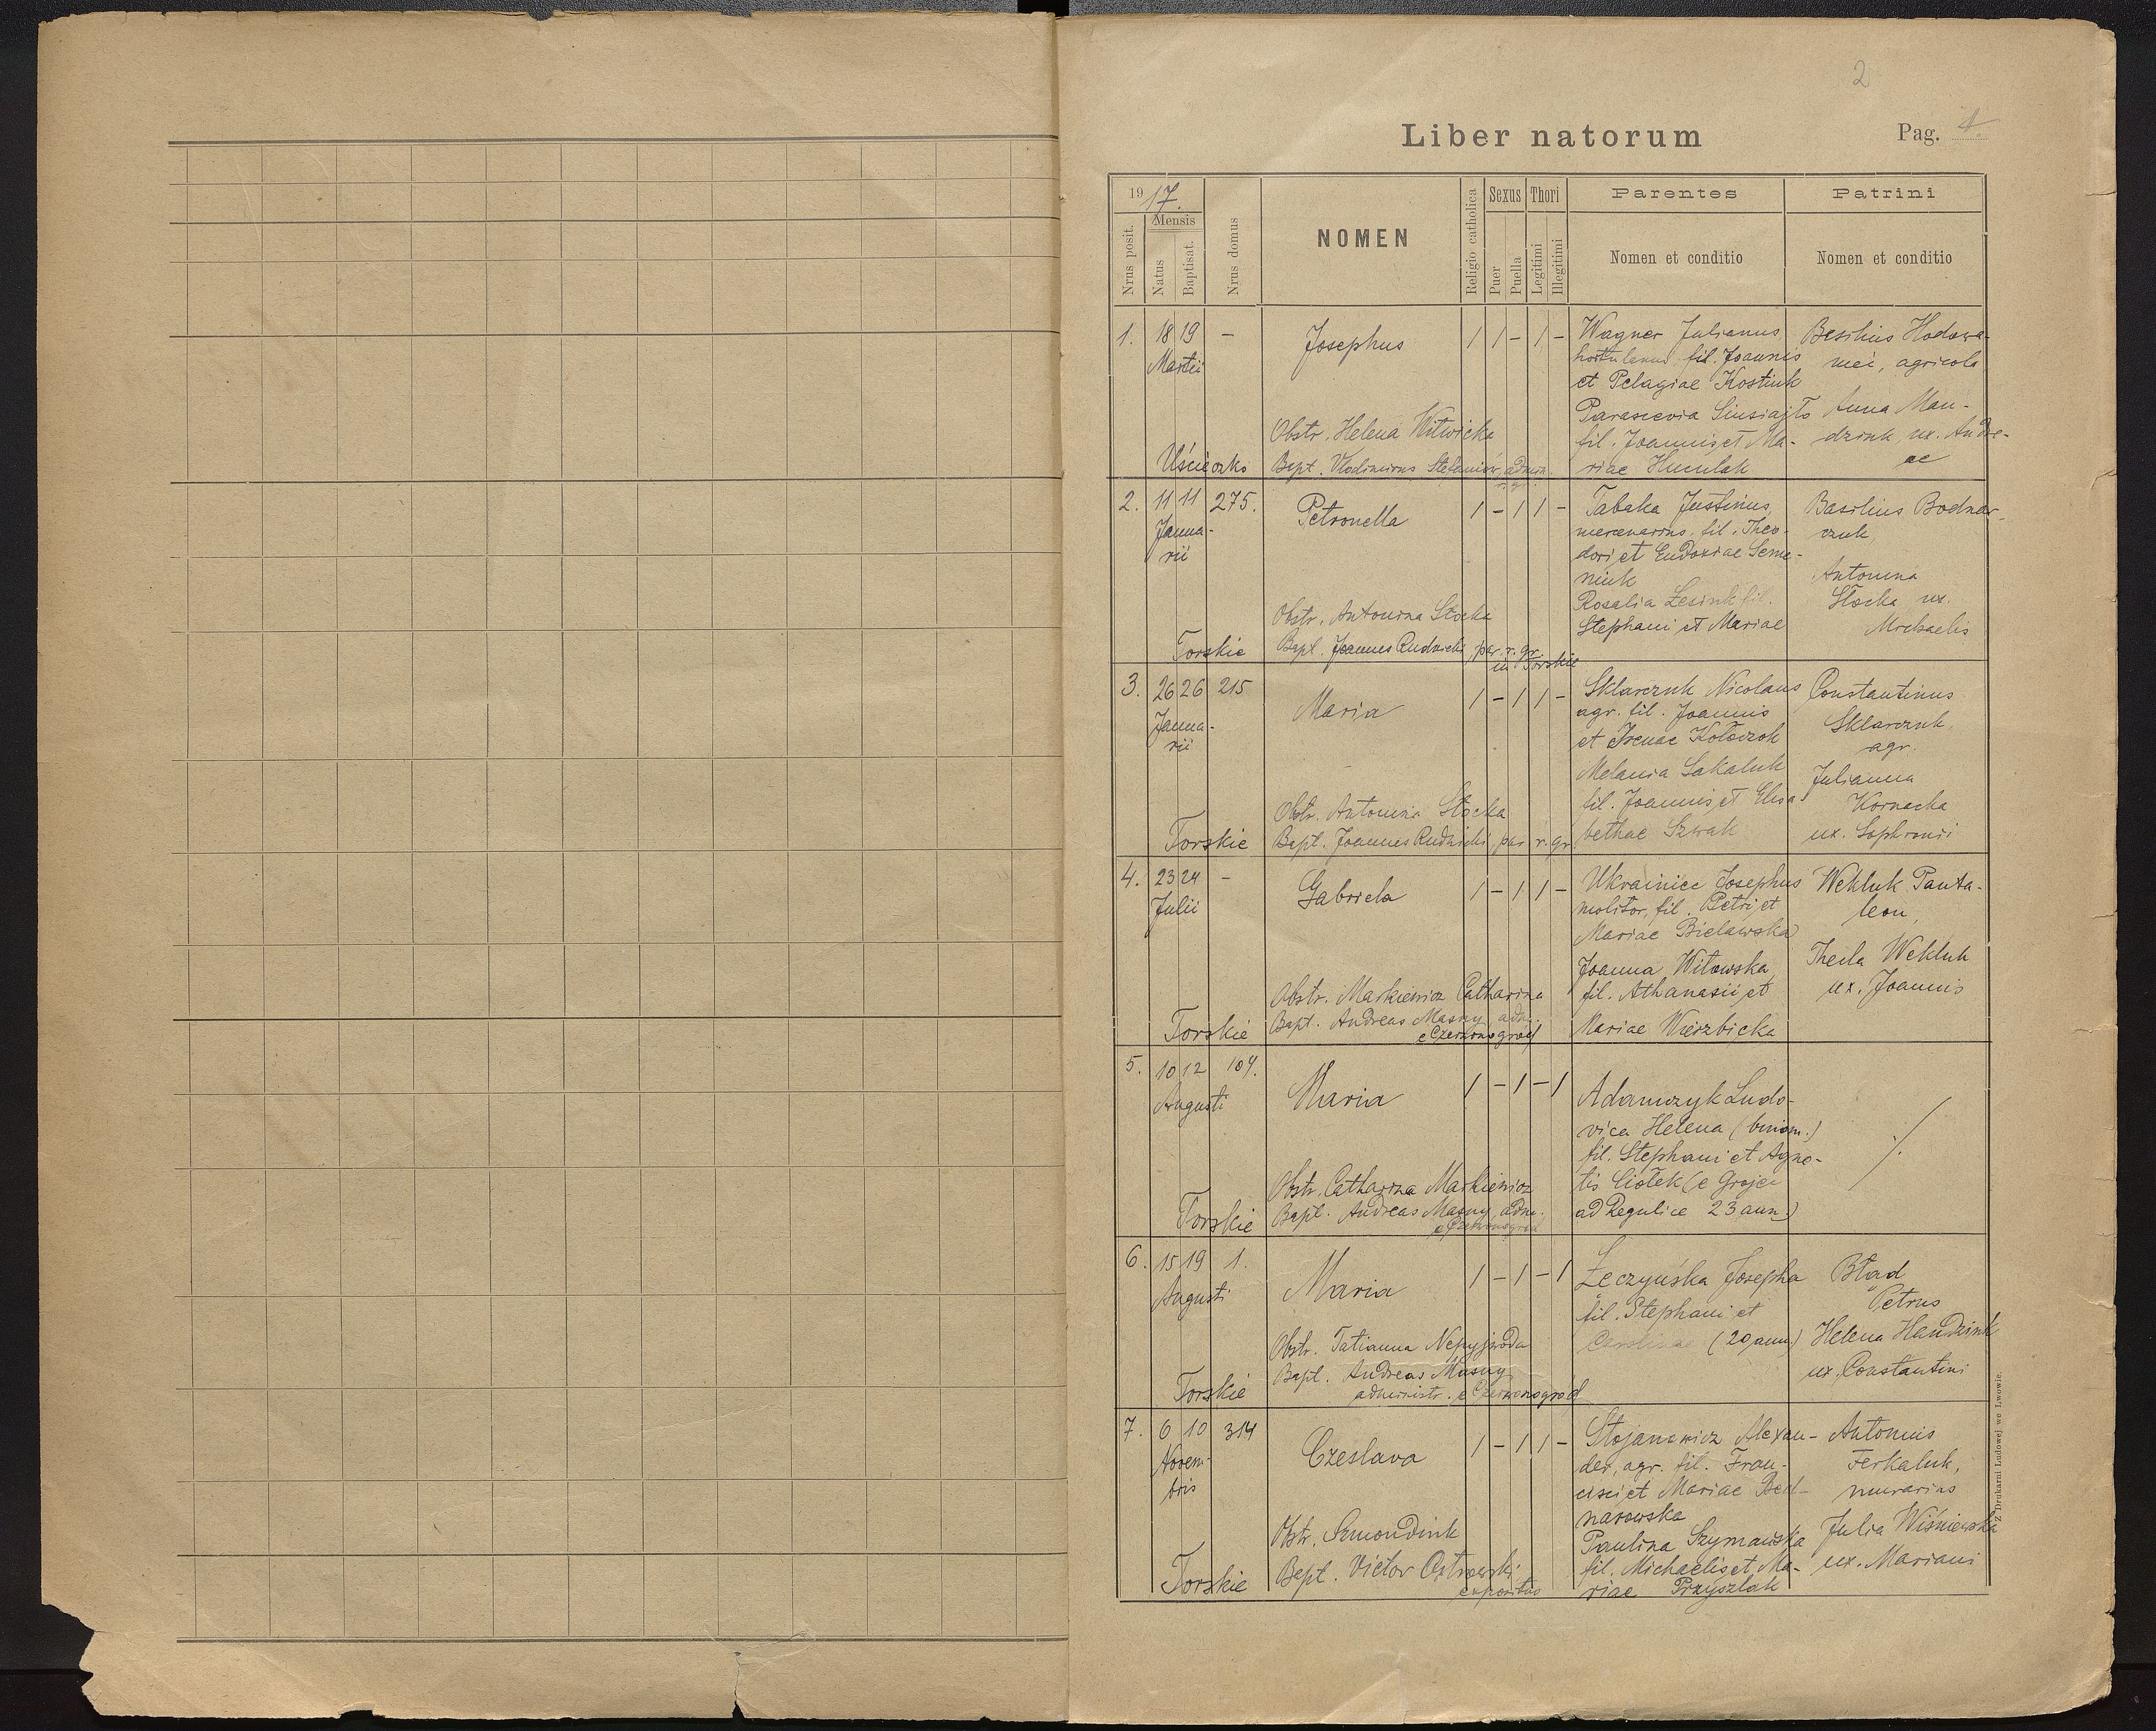 2
Liber natorum
Pag. 1.
1917.
Mensis
Nrus posit.
Natus
Baptisat.
Nrus domus
NOMEN
Religio catholica
Sexus
Puer
Puella
Thori
Legitimi
Illegitimi
Parentes
Nomen et conditio
Patrini
Nomen et conditio
1. 18 19 –
Martii
Uścieczko
Josephus
Obstr. Helena Witwicka
Bapt. Vlodimirus Stefaniów, admin.
/ / – / –
Wagner Julianus,
hortulanus fil. Joannis
et Pelagiae Kostiuk
Parascevia
fil. Joannis et Ma-
riae Huculak
Basilius Hodowa-
nieć, agricola
Anna Man-
dziuk, ux. Andre-
ae
2. 11 11 275.
Janua-
rii
Torskie
Petronella
Obstr. Antonina Słocka
Bapt. Joannes Rudnicki, par. r. gr.
in Torskie
/ – / / –
Tabaka Justinus,
mercenarius, fil. Theo-
dori et Eudoxiae Seme-
niuk
Rosalia Łesiuk fil.
Stephani et Mariae
Basilius Bodnar-
czuk
Antonina
Słocka ux.
Michaelis
3. 26 26 215
Janua-
rii
Torskie
Maria
Obstr. Antonina Słocka
Bapt. Joannes Rudnicki, par. r. gr.
/ – / / –
Sklarczuk Nicolaus
agr. fil. Joannis
et Irenae Kołoczok
Melania Sakaluk
fil. Joannis et Elisa
bethae Szwak
Constantinus
Sklarczuk,
agr.
Julianna
Kornacka
ux. Sophronii
4. 23 24 –
Julii
Torskie
Gabriela
Obstr. Markiewicz Catharina
Bapt. Andreas Masny adm.
e Czerwonogród
/ – / / –
Ukrainiec Josephus
molitor, fil. Petri et
Mariae Bielawska
Joanna Witowska,
fil. Athanasii et
Mariae Wierzbicka
Wekluk Panta-
leon,
Thecla Wekluk
ux. Joannis
5. 10 12 104.
Augusti
Torskie
Maria
Obstr. Catharina Markiewicz
Bapt. Andreas Masny adm.
e Czerwonogród
/ – / – /
Adamczyk Ludo-
vica Helena (binom.)
fil. Stephani et Agne-
tis Ciołek (e Grojec
ad Regulice 23 ann.)
./.
6. 15 19 1.
Augusti
Torskie
Maria
Obstr. Tatianna Nepyjwoda
Bapt. Andreas Masny
administr. e Czerwonogród
/ – / – /
Łęczyńska Josepha
fil. Stephani et
Carolinae (20 ann.)
Bład
Petrus
Helena Handziuk
ux. Constantini
7. 6 10 314
Novem-
bris
Torskie
Czeslava
Obstr. Semondiuk
Bapt. Victor Ostrowski
expositus
/ – / / –
Stojanowicz Alexan-
der, agr. fil. Fran-
cisci et Mariae Bed-
narowska
Paulina Szymańska
fil. Michaelis et Ma-
riae Przyszlak
Antonius
Ferkaluk,
murarius
Julia Wiśniewska
ux. Mariani
Z Drukarni Ludowej we Lwowie.